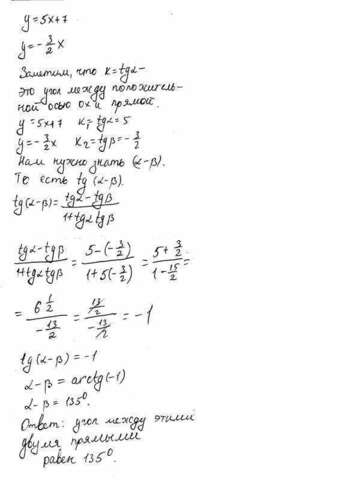 y=5x+7
y=-3/2x
Заметим, что k=tgα-
это угол между положитель-
ной осью ox и прямой.
y=5x+7 k₁=tgα=5
y=-3/2x k₂=tgβ=-3/2
Нам нужно знать (α-β).
То есть tg(α-β).
tg(α-β)=(tgα-tgβ)/(1+tgαtgβ)
(tgα-tgβ)/(1+tgαtgβ)=(5-(-3/2))/(1+5(-3/2))=(5+3/2)/(1-15/2)=
=(6 1/2)/(-13/2)=(13/2)/(-13/2)=-1
tg(α-β)=-1
α-β=arctg(-1)
α-β=135°.
Ответ: угол между этими
двумя прямыми
равен 135°.